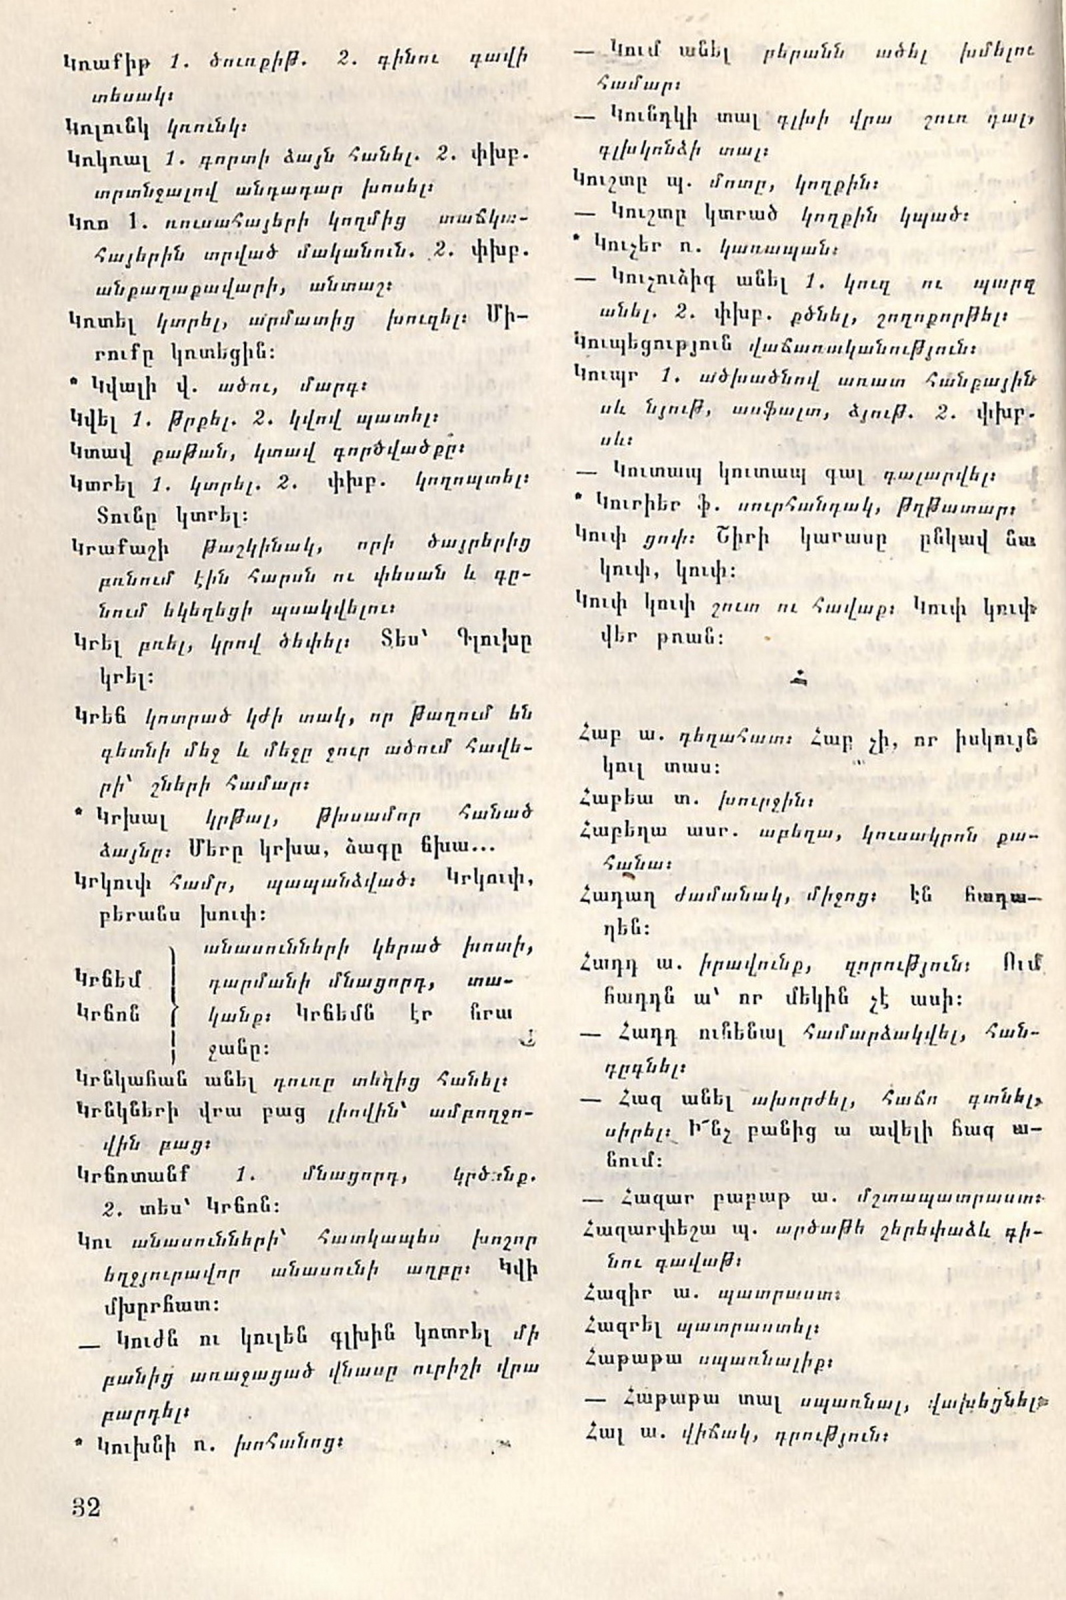 Կռաքիթ 1. ծուռքիթ. 2. գինու գավի
տեսակ։
Կոլունկ կռունկ։
Կոկռալ 1. գորտի ձայն հանել. 2. փխբ.
տրտնջալով անդադար խոսել։
Կոռ 1. ռուսահայերի կողմից տաճկա-
հայերին տրված մականուն. 2. փխբ.
անքաղաքավարի, անտաշ։
Կոտել կտրել, արմատից խուզել։ Մի-
րուքը կոտեցին։
* Կվալի վ. ածու, մարգ։
Կվել 1. թրքել. 2. կվով պատել։
Կտավ քաթան, կտավ գործվածքը։
Կտրել 1. կտրել. 2. փխբ. կողոպտել։
Տունը կտրել։
Կրաքաշի թաշկինակ, որի ծայրերից
բռնում էին հարսն ու փեսան և գը-
նում եկեղեցի պսակվելու։
Կրել բռել, կրով ծեփել։ Տես՝ Գլուխը
կրել։
Կրեճ կոտրած կժի տակ, որ թաղում են
գետնի մեջ և մեջը ջուր ածում հավե-
րի՝ շների համար։
* Կրխալ կրթալ, թխսամոր հանած
ձայնը։ Մերը կրխա, ձագը ճխա...
Կրկուփ համր, պապանձված։ Կրկուփ,
բերանս խուփ։
անասունների կերած խոտի,
Կրճեմ դարմանի մնացորդ, տա-
Կրճոն կանք։ Կրճեմն էր նրա
ջանը։
Կրնկահան անել դուռը տեղից հանել։
Կրնկների վրա բաց լիովին՝ ամբողջո-
վին բաց։
Կրճոտանք 1. մնացորդ, կրծանք.
2. տես՝ Կրճոն։
Կու անասունների՝ հատկապես խոշոր
եղջյուրավոր անասունի աղբը։ Կվի
մխըրհատ։
— Կուժն ու կուլեն գլխին կոտրել մի
բանից առաջացած վնասը ուրիշի վրա
բարդել։
* Կուխնի ռ. խոհանոց։
— Կում անել բերանն ածել խմելու
համար։
— Կունդկի տալ գլխի վրա շուռ գալ,
գլխկոնձի տալ։
Կուշտը պ. մոտը, կողքին։
— Կուշտը կտրած կողքին կպած։
* Կուչեր ռ. կառապան։
— Կուչուձիգ անել 1. կուզ ու պարզ
անել. 2. փխբ. քծնել, շողոքորթել։
Կուպեցություն վաճառականություն։
Կուպր 1. ածխածնով առատ հանքային
սև նյութ, ասֆալտ, ձյութ. 2. փխբ.
սև։
— Կուտապ կուտապ գալ գալարվել։
* Կուրիեր ֆ. սուրհանդակ, թղթատար։
Կուփ ցուփ։ Շիրի կարասը ընկավ նա
կուփ, կուփ։
Կուփ կուփ շուտ ու հավաք։ Կուփ կուփ
վեր թռան։
Հ
Հաբ ա. դեղահատ։ Հաբ չի, որ իսկույն
կուլ տաս։
Հաբեա տ. խուրջին։
Հաբեղա ասր. աբեղա, կուսակրոն քա-
հանա։
Հադաղ ժամանակ, միջոց։ էն հադա-
ղեն։
Հադդ ա. իրավունք, զորություն։ Ում
հադդն ա՝ որ մեկին չէ ասի։
— Հադդ ունենալ համարձակվել, հան-
դըգնել։
— Հազ անել ախորժել, հաճո գտնել,
սիրել։ Ի՞նչ բանից ա ավելի հազ ա-
նում։
— Հազար բաբաթ ա. մշտապատրաստ։
Հազարփեշա պ. արծաթե շերեփաձև գի-
նու գավաթ։
Հազիր ա. պատրաստ։
Հազրել պատրաստել։
Հաթաթա սպառնալիք։
— Հաթաթա տալ սպառնալ, վախեցնել։
Հալ ա. վիճակ, դրություն։
32